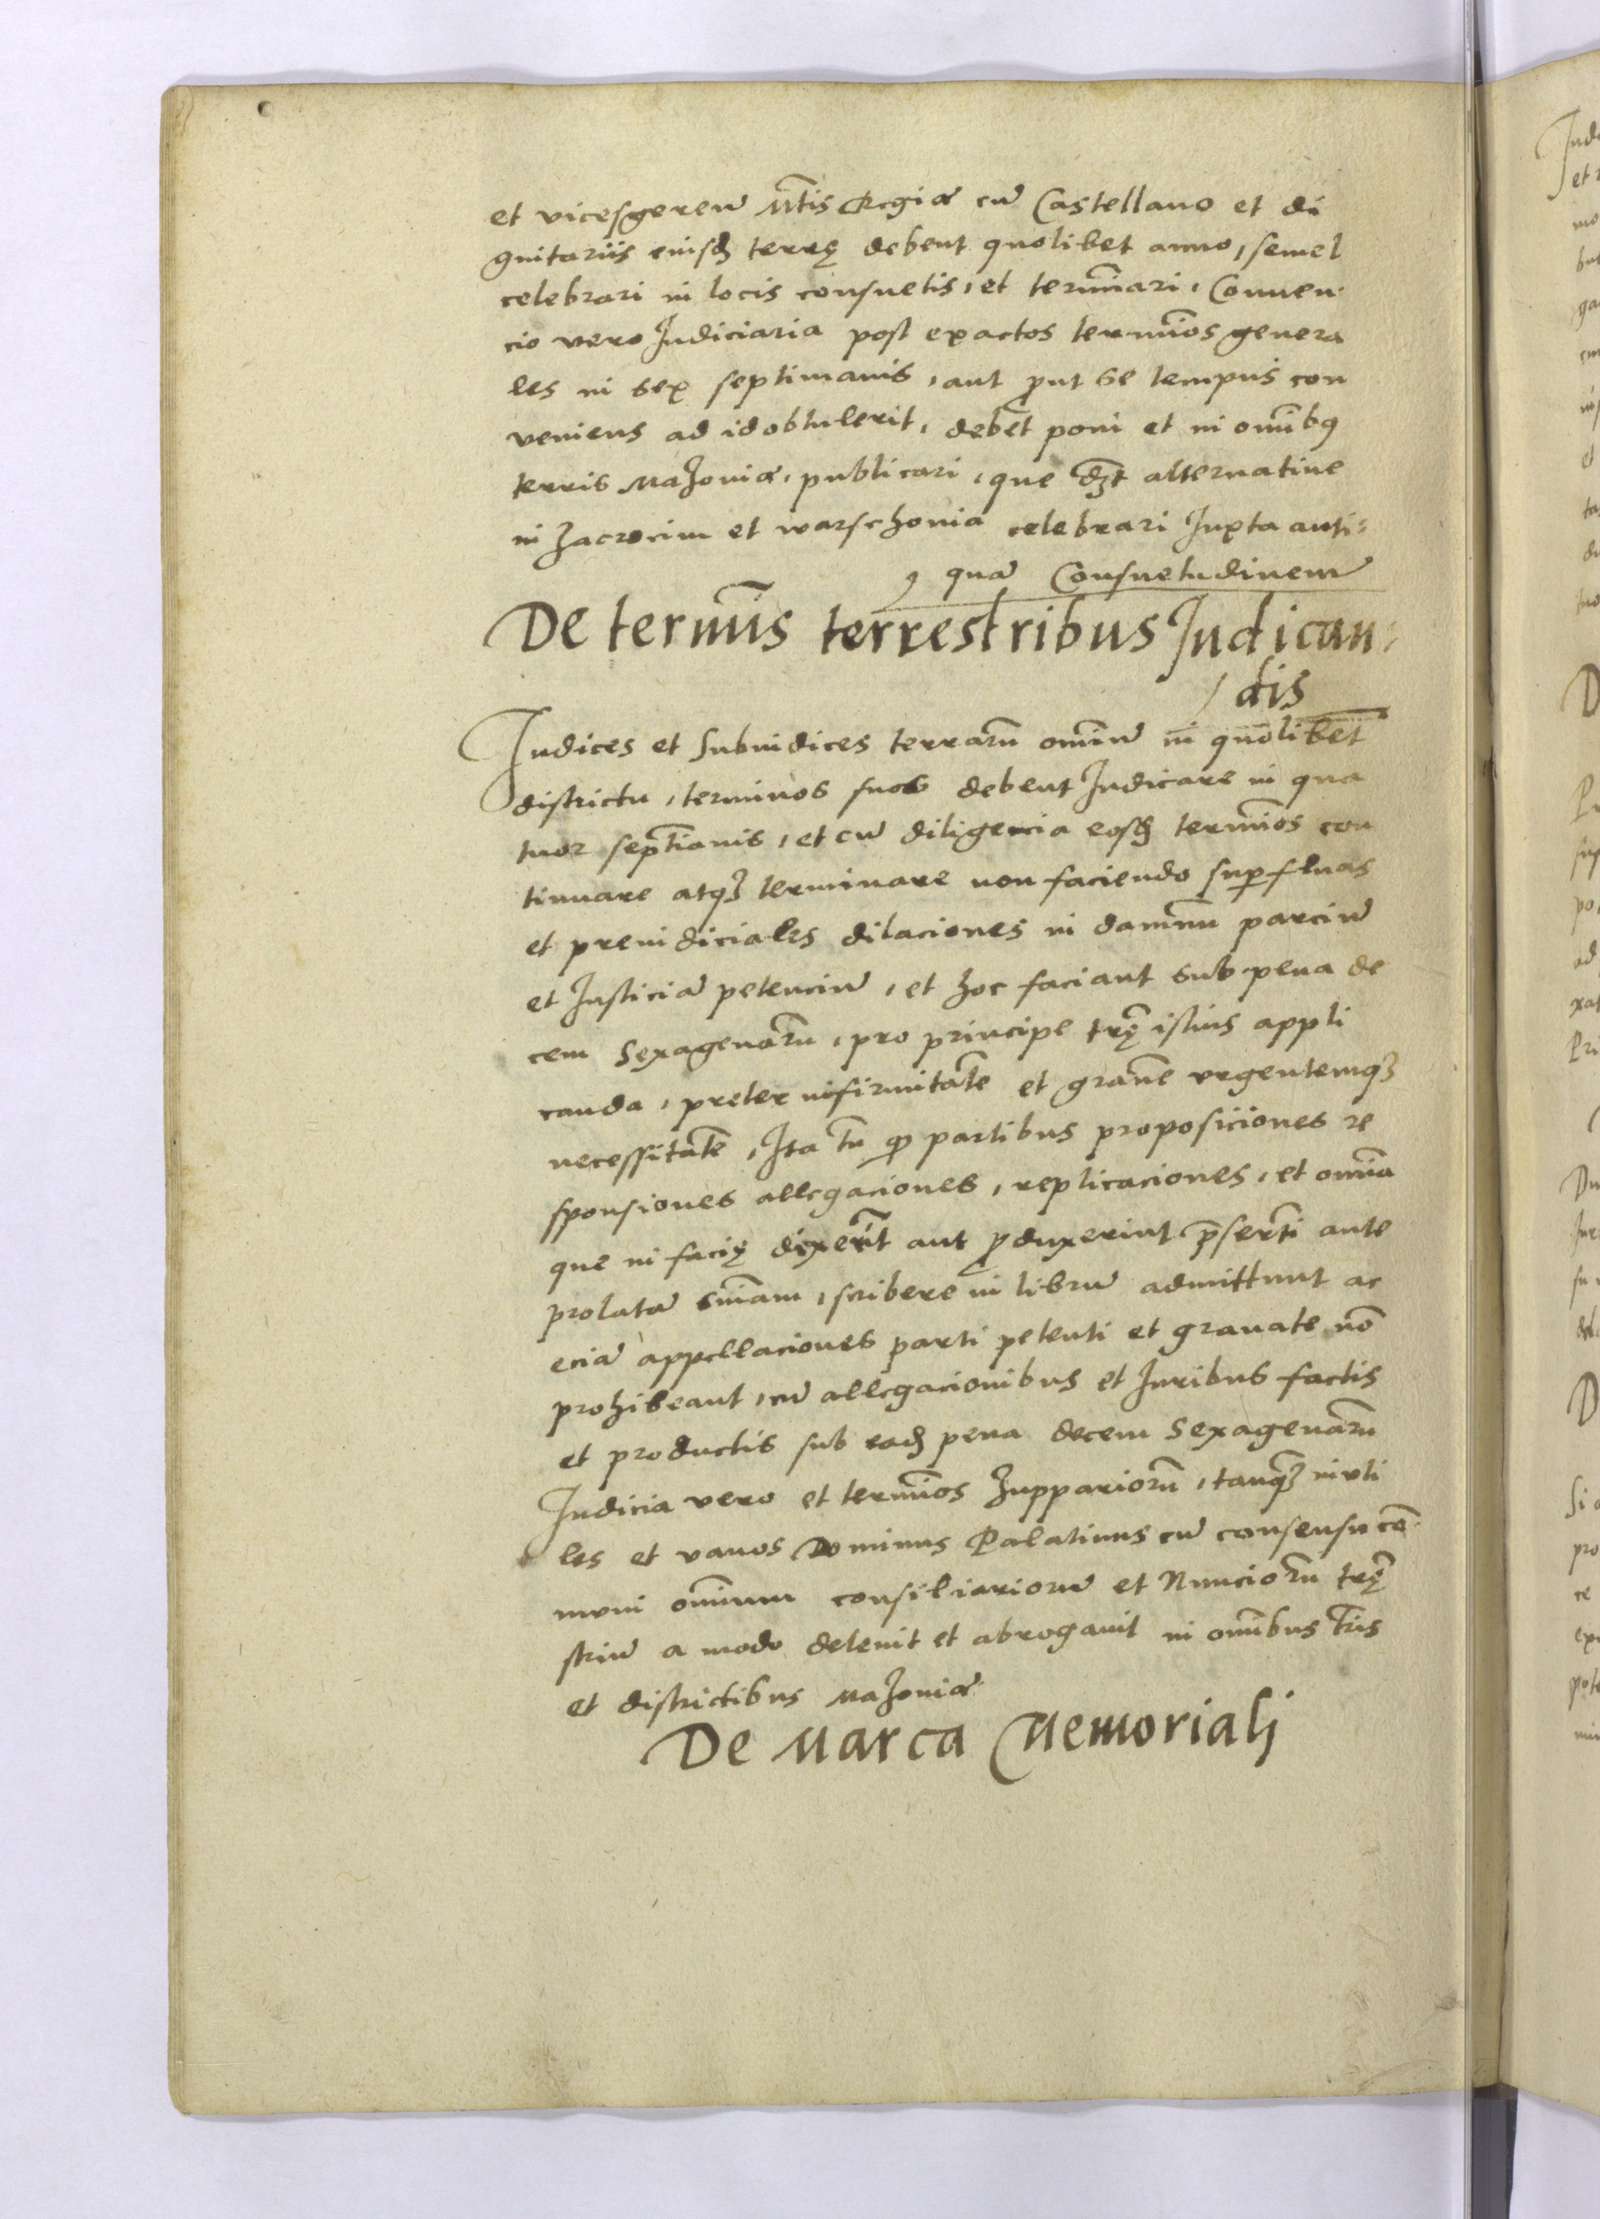 et vicesgerenē Mt̄is Regiæ cū Castellano et di
gnitariis eiusd̄ terrę debent quolibet anno, semel
celebrari in locis consuetis, et termīnari, Conuen
cio vero Iudiciaria post exactos termīos genera
les in sex septimanis, aut ꝓut se tempus con
veniens ad id obtulerit, debēt poni et in omībꝫ
terris Mazouiæ, publicari, que dꝫt alternatiue
in Zacrocim et warschouia celebrari Iuxta anti
quā Consuetudinem
De termīs terrestribus Iudican
dis
Iudices et Subiudices terrarū omniū in quolibet
districtu, terminos suos debent Iudicare in qua
tuor septīanis, et cū diligencia eosd̄ termīos con
tinuare atqꝫ terminare non faciendo suꝑfluas
et preiudiciales dilaciones in damnū parciū
et Iusticiā petenciū, et hoc faciant sub pena de
cem Sexagenarū, pro principe trę̄ istius appli
canda, preter infirmitatē et grauē vrgentemqꝫ
necessitatē, Ita tn̄ ꝙ partibus proposiciones re
sponsiones allegaciones, replicaciones, et omīa
que in facię dixerīt aut ꝓduxerint p̄sertī ante
prolatā sniam, scribere in librū admittunt ac
eciā appellaciones parti petenti et grauate nō
prohibeant, cū allegacionibus et Iuribus factis
et productis sub ead̄ pena decem Sexagenarū
Iudicia vero et termīos Zuppariorū, tanqꝫ inuti
les et vanos Dominus Palatinus cū consensu cō
muni omnium consiliariorū et Nunciorū trę̄
striū a modo deleuit et abrogauit in omībus tr̄is
et districtibus Mazouiæ
De Marca Memoriali